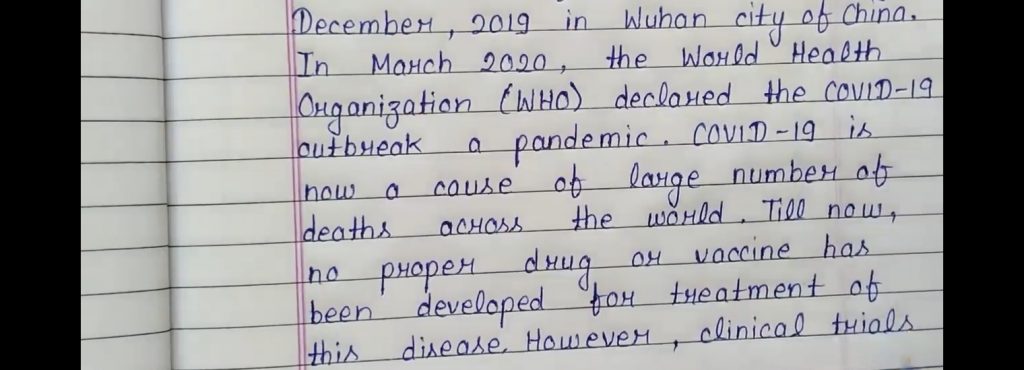 December, 2019 in Wuhan city of China.
In March 2020, the World Health
Organization (WHO) declared the COVID-19
outbreak a pandemic. COVID-19 is
now a cause of large number of
deaths across the world. Till now,
no proper drug or vaccine has
been developed for treatment of
this disease. However, clinical trials